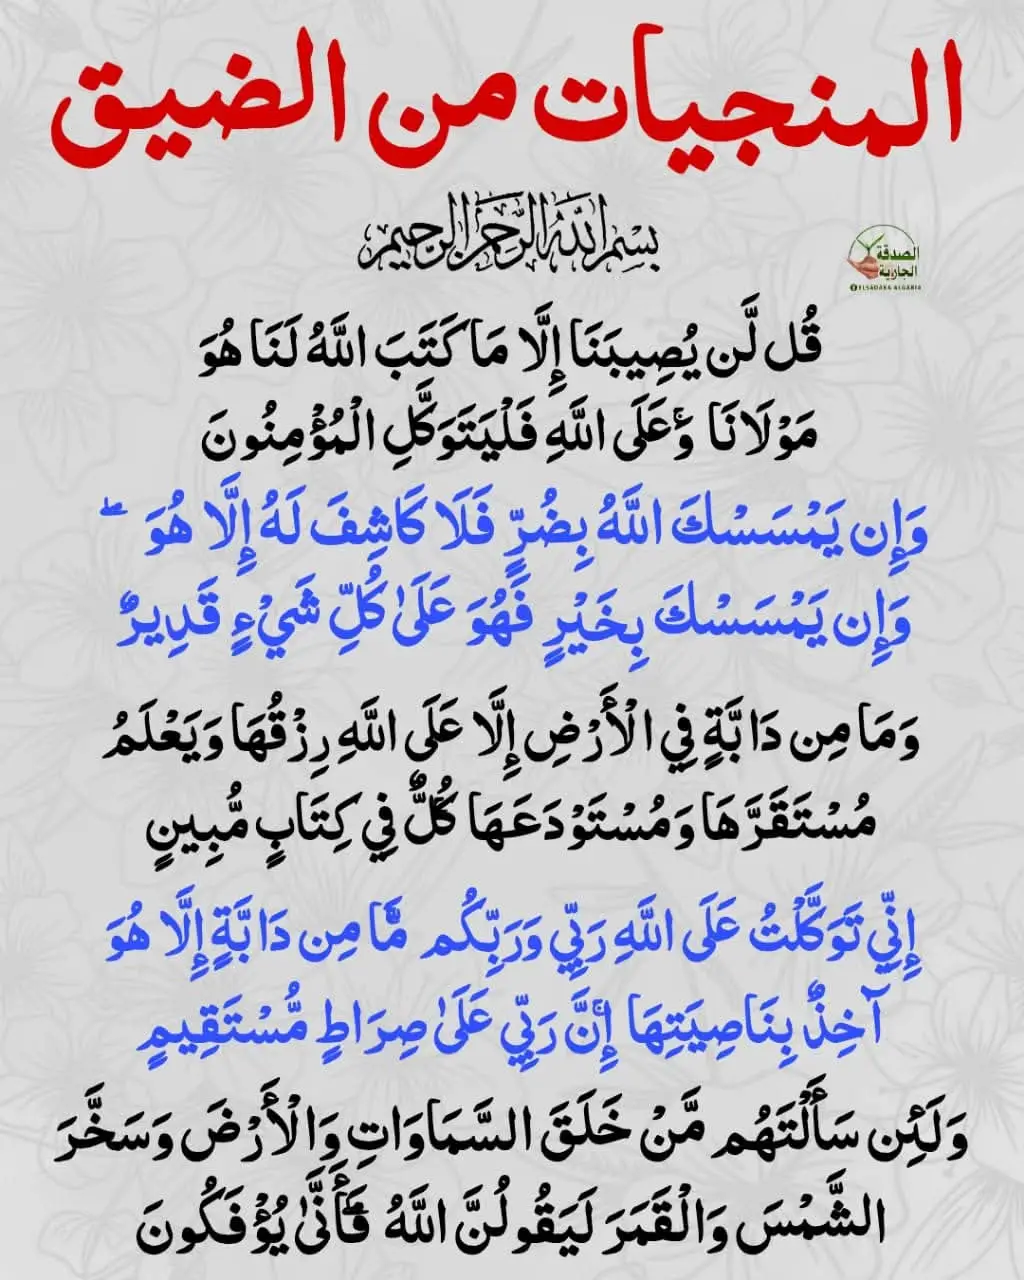 المنجيات من الضيق
بسم الله الرحمن الرحيم
الصدقة
الجارية
ELSADAKA ALGARIA
قُل لَّن يُصِيبَنَا إِلَّا مَا كَتَبَ اللَّهُ لَنَا هُوَ
مَوْلَانَا ۚ وَعَلَى اللَّهِ فَلْيَتَوَكَّلِ الْمُؤْمِنُونَ
وَإِن يَمْسَسْكَ اللَّهُ بِضُرٍّ فَلَا كَاشِفَ لَهُ إِلَّا هُوَ ۖ
وَإِن يَمْسَسْكَ بِخَيْرٍ فَهُوَ عَلَىٰ كُلِّ شَيْءٍ قَدِيرٌ
وَمَا مِن دَابَّةٍ فِي الْأَرْضِ إِلَّا عَلَى اللَّهِ رِزْقُهَا وَيَعْلَمُ
مُسْتَقَرَّهَا وَمُسْتَوْدَعَهَا ۚ كُلٌّ فِي كِتَابٍ مُّبِينٍ
إِنِّي تَوَكَّلْتُ عَلَى اللَّهِ رَبِّي وَرَبِّكُم ۚ مَّا مِن دَابَّةٍ إِلَّا هُوَ
آخِذٌ بِنَاصِيَتِهَا ۚ إِنَّ رَبِّي عَلَىٰ صِرَاطٍ مُّسْتَقِيمٍ
وَلَئِن سَأَلْتَهُم مَّنْ خَلَقَ السَّمَاوَاتِ وَالْأَرْضَ وَسَخَّرَ
الشَّمْسَ وَالْقَمَرَ لَيَقُولُنَّ اللَّهُ ۖ فَأَنَّىٰ يُؤْفَكُونَ